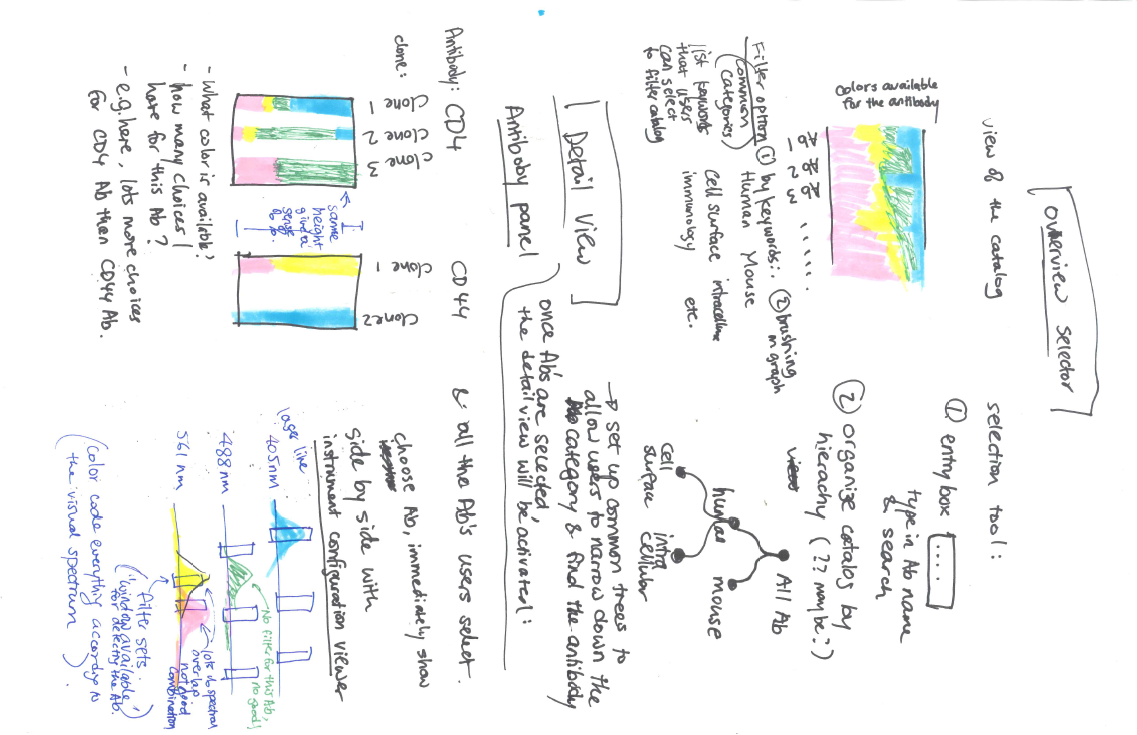 overview selector
view of the catalog
Colors available
for the antibody
Ab 1
Ab 2
Ab 3
. . . . .
Filter option
(common
categories)
list keywords
that users
can select
to filter catalog
① by keywords:
Human Mouse
Cell surface intracellular
immunology etc.
② brushing
in graph
selection tool:
① entry box
type in Ab name
& search
② organize catalog by
hierachy (?? maybe?)
All Ab
human mouse
cell surface
intra cellular
→ set up common trees to
allow users to narrow down the
category & find the antibody
Detail view
once Ab's are selected,
the detail view will be activated:
Antibody panel
Antibody: CD4
clone:
clone 1
clone 2
clone 3
same
height
give a
sense
of %.
CD44
clone 1
clone 2
- What color is available?
- how many choices I
have for this Ab?
- e.g. here, lots more choices
for CD4 Ab then CD44 Ab.
& all the Ab's users select.
choose Ab, immediately show
side by side with
instrument configuration viewer
laser line
405nm
488nm
561nm
No filter for this Ab,
no good!
lots of spectral
overlap
not good
combination
filter sets.
("window available"
for detecting the Ab.)
(Color code everything according to
the visual spectrum)